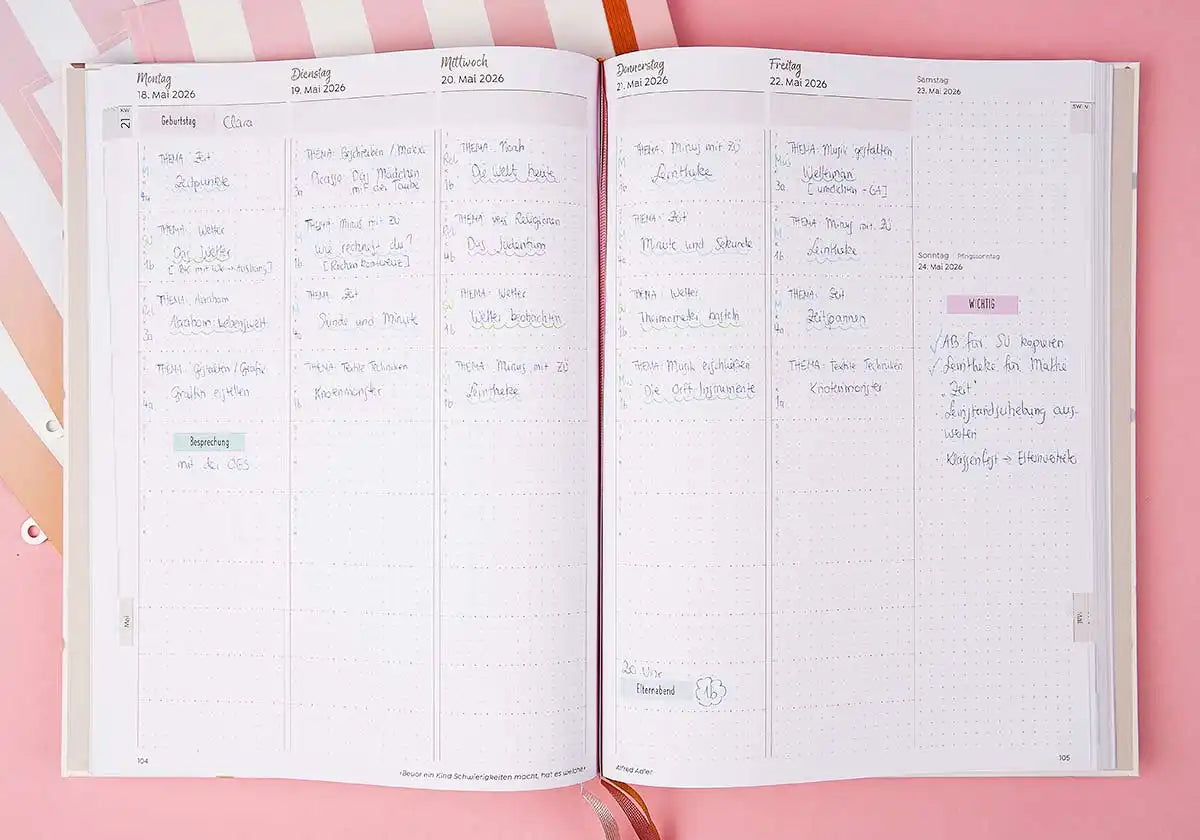 Montag
18. Mai 2026
KW
21
Geburtstag Clara
M
THEMA: Zeit
Zeitpunkte
4a
SU
THEMA: Wetter
Das Wetter
1b
Rel
THEMA: Abraham
Abraham: Lebenswelt
3a
THEMA: Gestalten / Grafik
4a
Besprechung
mit der OGS
Mai
104
Dienstag
19. Mai 2026
Picasso: Das Mädchen
mit der Taube
3a
M
THEMA: Minus mit ZÜ
Wie rechnest du?
1b
M
THEMA: Zeit
4a
THEMA: Textile Techniken
Knotenmonster
1b
Mittwoch
20. Mai 2026
Rel
THEMA: Noah
Die Welt heute
1b
Rel
Das Judentum
4b
SU
THEMA: Wetter
Wetter beobachten
1b
M
THEMA: Minus mit ZÜ
Lerntheke
1b
»Bevor ein Kind Schwierigkeiten macht, hat es welche.«
Donnerstag
21. Mai 2026
M
THEMA: Minus mit ZÜ
Lerntheke
1b
M
THEMA: Zeit
Minute und Sekunde
4a
SU
THEMA: Wetter
Thermometer basteln
1b
Mus
THEMA: Musik erschließen
Die Orff-Instrumente
1b
20 Uhr
Elternabend 1b
Alfred Adler
Freitag
22. Mai 2026
Mus
THEMA: Musik gestalten
3a
M
THEMA: Minus mit ZÜ
Lerntheke
1b
M
THEMA: Zeit
Zeitspannen
4a
THEMA: Textile Techniken
Knotenmonster
1a
Samstag
23. Mai 2026
Sonntag Pfingstsonntag
24. Mai 2026
WICHTIG
✓ AB für SU kopieren
✓ Lerntheke für Mathe
"Zeit"
· Lernstandserhebung aus-
werten
· Klassenfest → Elternvertreter
Mai
105